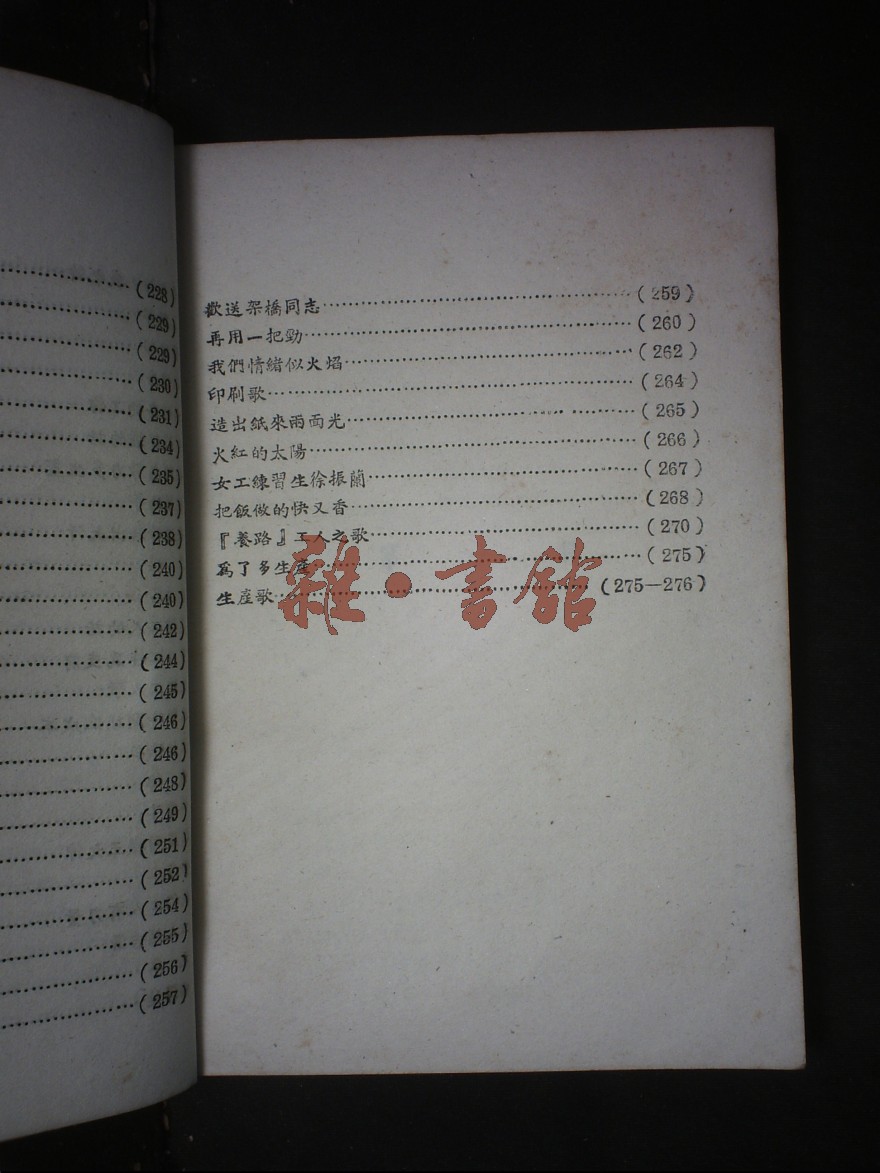 (228)
(229)
(229)
(230)
(231)
(234)
(235)
(237)
(238)
(240)
(240)
(242)
(244)
(245)
(246)
(246)
(248)
(249)
(251)
(252)
(254)
(255)
(256)
(257)
歡送架橋同志……(259)
再用一把勁……(260)
我們情緒似火焰……(262)
印刷歌……(264)
造出紙來兩面光……(265)
火紅的太陽……(266)
女工練習生徐振蘭……(267)
把飯做的快又香……(268)
『養路』工人之歌……(270)
爲了多生產……(275)
生產歌……(275—276)
雜·書館